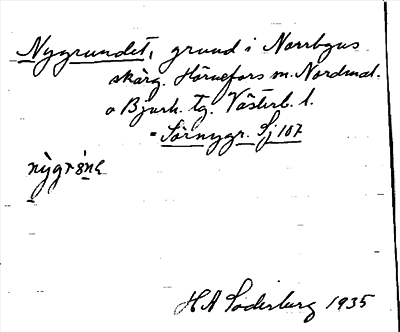 Nygrundet, grund i Norrbyns
skärg. Hörnefors sn. Nordmal.
o Bjurh. tg. Västerb. l.
= Sörnygr. Sj 107
H A Söderberg 1935